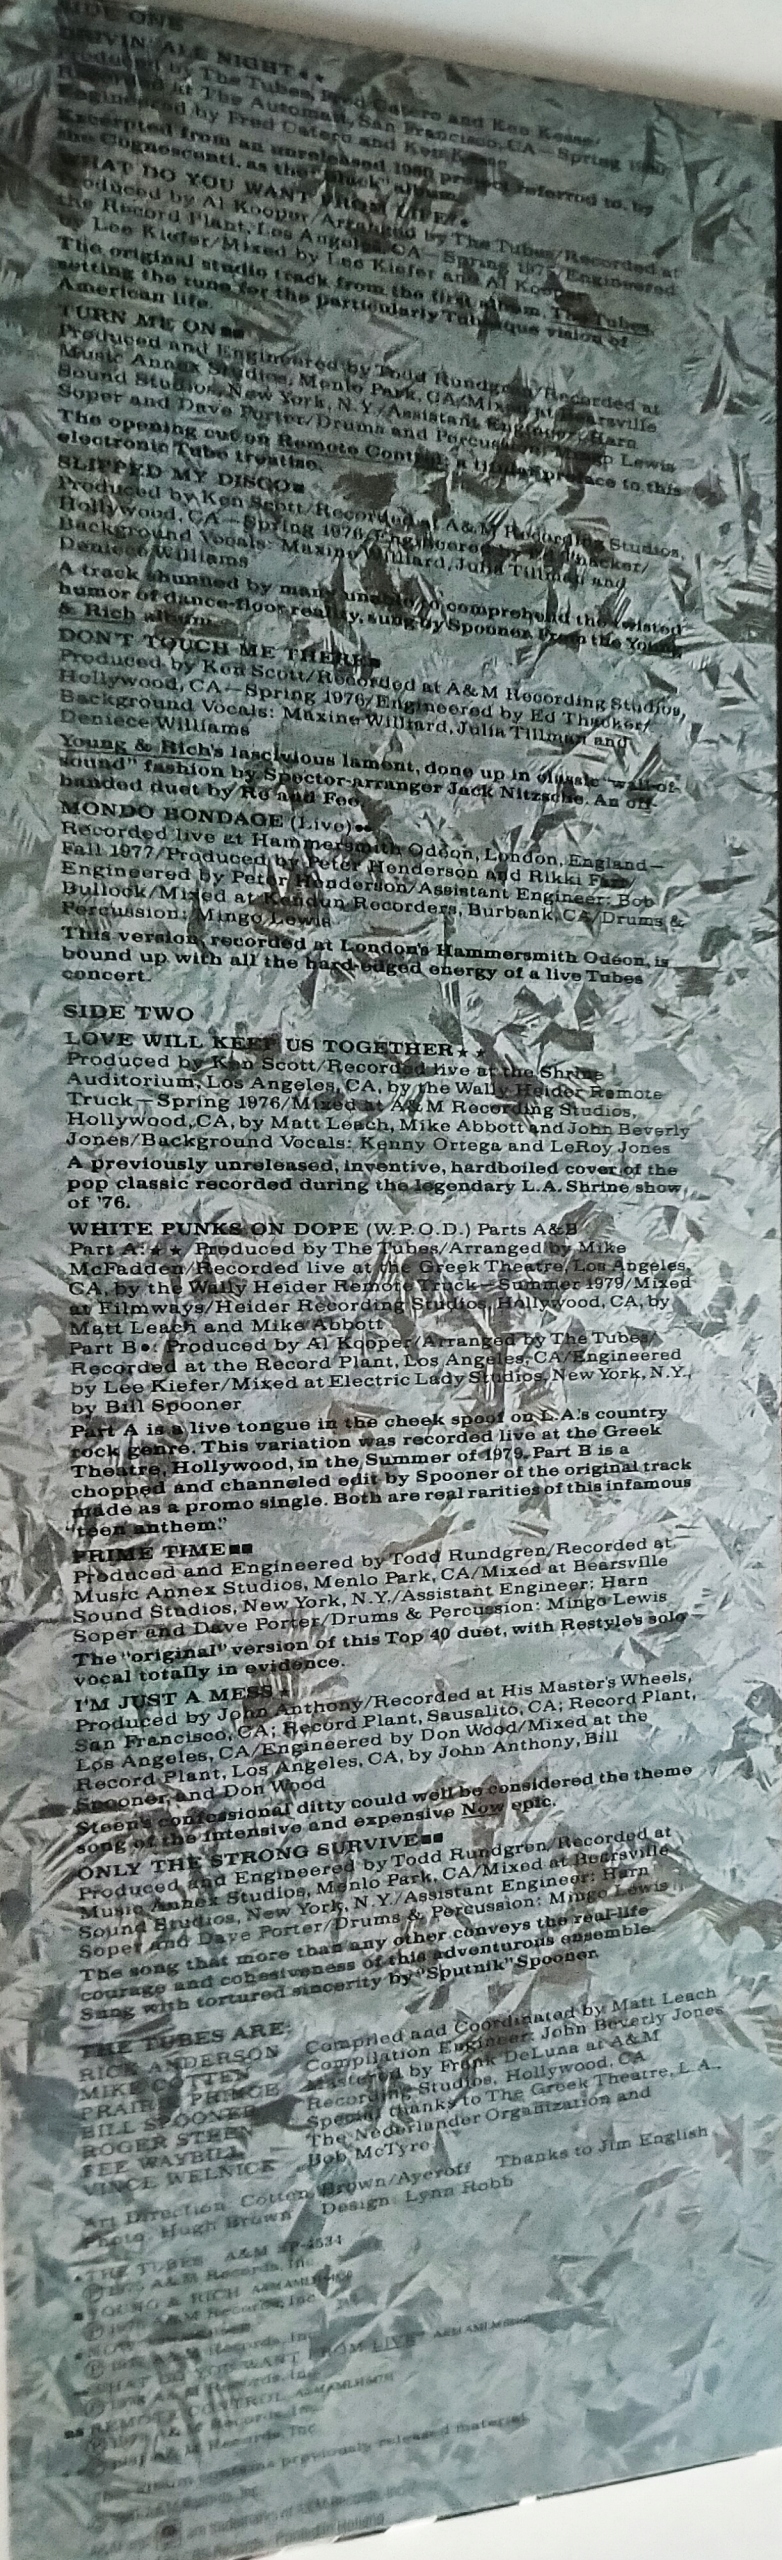 SIDE ONE
DRIVIN' ALL NIGHT★★
Produced by The Tubes, Fred Catero and Ken Kessie/
Recorded at The Automatt, San Francisco, CA—Spring
Engineered by Fred Catero and Ken Kessie
Excerpted from an unreleased 1980 project referred to, by
the Cognoscenti, as the "Black" album.
WHAT DO YOU WANT FROM LIFE?●
Produced by Al Kooper/Arranged by The Tubes/Recorded at
the Record Plant, Los Angeles, CA—Spring 1975/Engineered
by Lee Kiefer/Mixed by Lee Kiefer and Al Kooper
The original studio track from the first album, The Tubes,
setting the tune for the particularly Tubesque vision of
American life.
TURN ME ON■■
Produced and Engineered by Todd Rundgren/Recorded at
Music Annex Studios, Menlo Park, CA/Mixed at Bearsville
Sound Studios, New York, N.Y./Assistant Engineer: Harn
Soper and Dave Porter/Drums and Percussion: Mingo Lewis
The opening cut on Remote Control; a preface to this
electronic Tube treatise.
SLIPPED MY DISCO■
Produced by Ken Scott/Recorded at A&M Recording Studios,
Hollywood, CA—Spring 1976/Engineered by Ed Thacker/
Background Vocals: Maxine Willard, Julia Tillman and
Deniece Williams
A track shunned by many unable to comprehend the twisted
humor of dance-floor reality, sung by Spooner. From the Young
& Rich album.
DON'T TOUCH ME THERE■
Produced by Ken Scott/Recorded at A&M Recording Studios,
Hollywood, CA—Spring 1976/Engineered by Ed Thacker/
Background Vocals: Maxine Willard, Julia Tillman and
Deniece Williams
Young & Rich's lascivious lament, done up in classic "wall-of-
sound" fashion by Spector-arranger Jack Nitzsche. An off-
handed duet by Re and Fee.
MONDO BONDAGE (Live)●●
Recorded live at Hammersmith Odeon, London, England—
Fall 1977/Produced by Peter Henderson and Rikki Farr/
Engineered by Peter Henderson/Assistant Engineer: Bob
Bullock/Mixed at Kendun Recorders, Burbank, CA/Drums &
Percussion: Mingo Lewis
This version, recorded at London's Hammersmith Odeon, is
bound up with all the hard-edged energy of a live Tubes
concert.
SIDE TWO
LOVE WILL KEEP US TOGETHER★★
Produced by Ken Scott/Recorded live at the Shrine
Auditorium, Los Angeles, CA, by the Wally Heider Remote
Truck—Spring 1976/Mixed at A&M Recording Studios,
Hollywood, CA, by Matt Leach, Mike Abbott and John Beverly
Jones/Background Vocals: Kenny Ortega and LeRoy Jones
A previously unreleased, inventive, hardboiled cover of the
pop classic recorded during the legendary L.A. Shrine show
of '76.
WHITE PUNKS ON DOPE (W.P.O.D.) Parts A&B
Part A:★★ Produced by The Tubes/Arranged by Mike
McFadden/Recorded live at the Greek Theatre, Los Angeles,
CA, by the Wally Heider Remote Truck—Summer 1979/Mixed
at Filmways/Heider Recording Studios, Hollywood, CA, by
Matt Leach and Mike Abbott
Part B●: Produced by Al Kooper/Arranged by The Tubes/
Recorded at the Record Plant, Los Angeles, CA/Engineered
by Lee Kiefer/Mixed at Electric Lady Studios, New York, N.Y.,
by Bill Spooner
Part A is a live tongue in the cheek spoof on L.A.'s country
rock genre. This variation was recorded live at the Greek
Theatre, Hollywood, in the Summer of 1979. Part B is a
chopped and channeled edit by Spooner of the original track
made as a promo single. Both are real rarities of this infamous
"teen anthem."
PRIME TIME■■
Produced and Engineered by Todd Rundgren/Recorded at
Music Annex Studios, Menlo Park, CA/Mixed at Bearsville
Sound Studios, New York, N.Y./Assistant Engineer: Harn
Soper and Dave Porter/Drums & Percussion: Mingo Lewis
The "original" version of this Top 40 duet, with Restyle's solo
vocal totally in evidence.
I'M JUST A MESS★
Produced by John Anthony/Recorded at His Master's Wheels,
San Francisco, CA; Record Plant, Sausalito, CA; Record Plant,
Los Angeles, CA/Engineered by Don Wood/Mixed at the
Record Plant, Los Angeles, CA, by John Anthony, Bill
Spooner, and Don Wood
Steen's confessional ditty could well be considered the theme
song of the intensive and expensive Now epic.
ONLY THE STRONG SURVIVE■■
Produced and Engineered by Todd Rundgren/Recorded at
Music Annex Studios, Menlo Park, CA/Mixed at Bearsville
Sound Studios, New York, N.Y./Assistant Engineer: Harn
Soper and Dave Porter/Drums & Percussion: Mingo Lewis
The song that more than any other conveys the real-life
courage and cohesiveness of this adventurous ensemble.
Sung with tortured sincerity by "Sputnik" Spooner.
THE TUBES ARE:
RICK ANDERSON
MIKE COTTEN
PRAIRIE PRINCE
BILL SPOONER
ROGER STEEN
FEE WAYBILL
VINCE WELNICK
Compiled and Coordinated by Matt Leach
Compilation Engineer: John Beverly Jones
Mastered by Frank DeLuna at A&M
Recording Studios, Hollywood, CA
Special thanks to The Greek Theatre, L.A.,
The Nederlander Organization and
Bob McTyre
Art Direction: Cotten/Brown/Ayeroff Thanks to Jim English
Photo: Hugh Brown Design: Lynn Robb
●THE TUBES A&M SP-4534
Ⓟ 1975 A&M Records, Inc.
■YOUNG & RICH
Ⓟ 1976 A&M Records, Inc.
★NOW
A&M Records, Inc.
●●WHAT DO YOU WANT FROM LIVE
Ⓟ 1978 A&M Records, Inc.
■■REMOTE CONTROL
Ⓟ 1979 A&M Records, Inc.
A&M Records, Inc.
previously released material.